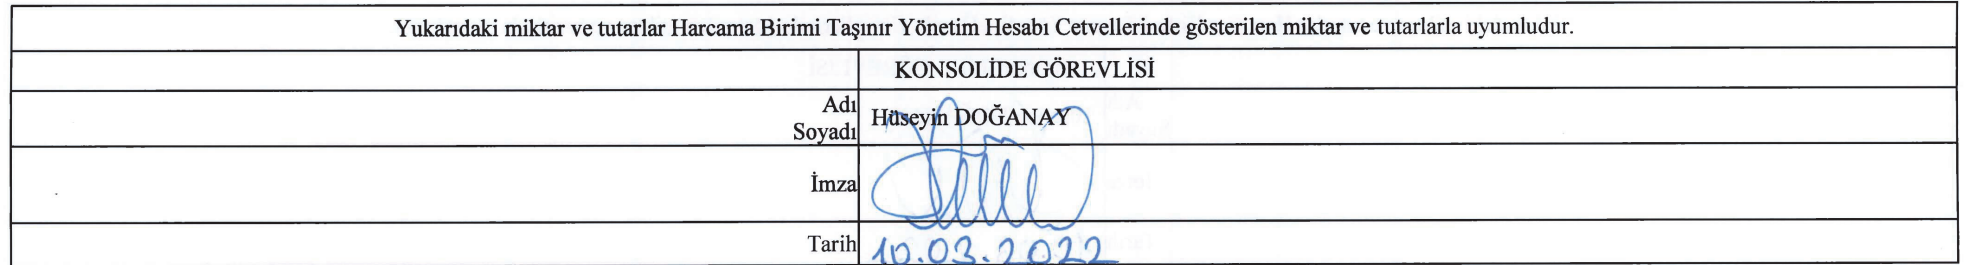 Yukarıdaki miktar ve tutarlar Harcama Birimi Taşınır Yönetim Hesabı Cetvellerinde gösterilen miktar ve tutarlarla uyumludur.
KONSOLİDE GÖREVLİSİ
Adı
Soyadı
Hüseyin DOĞANAY
İmza
Tarih 10.03.2022